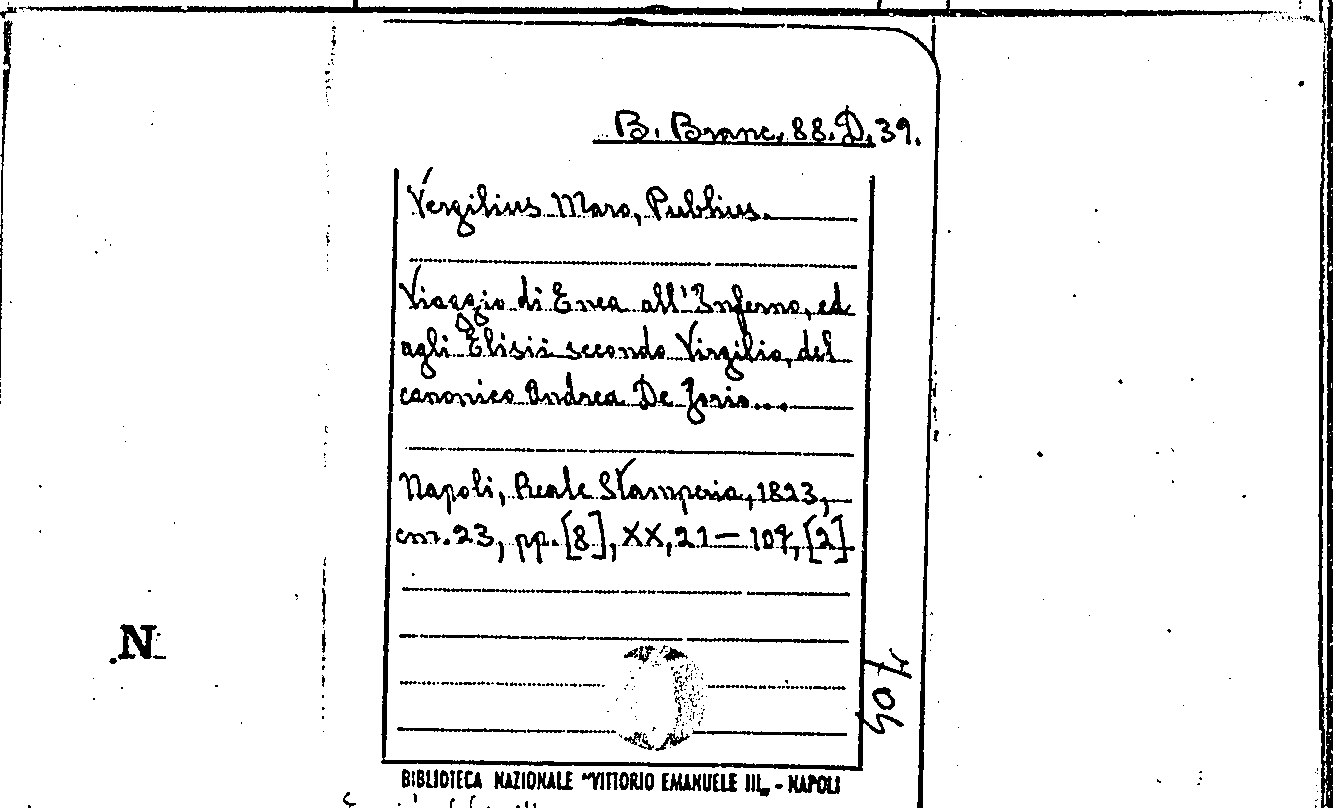 B. Branc. 88. D. 39.
Vergilius Maro, Publius.
Viaggio di Enea all'Inferno, ed
agli Elisii secondo Virgilio, del
canonico Andrea De Jorio...
Napoli, Reale Stamperia, 1823,
cm. 23, pp. [8], XX, 21-107, [2].
N
BIBLIOTECA NAZIONALE "VITTORIO EMANUELE III„ - NAPOLI